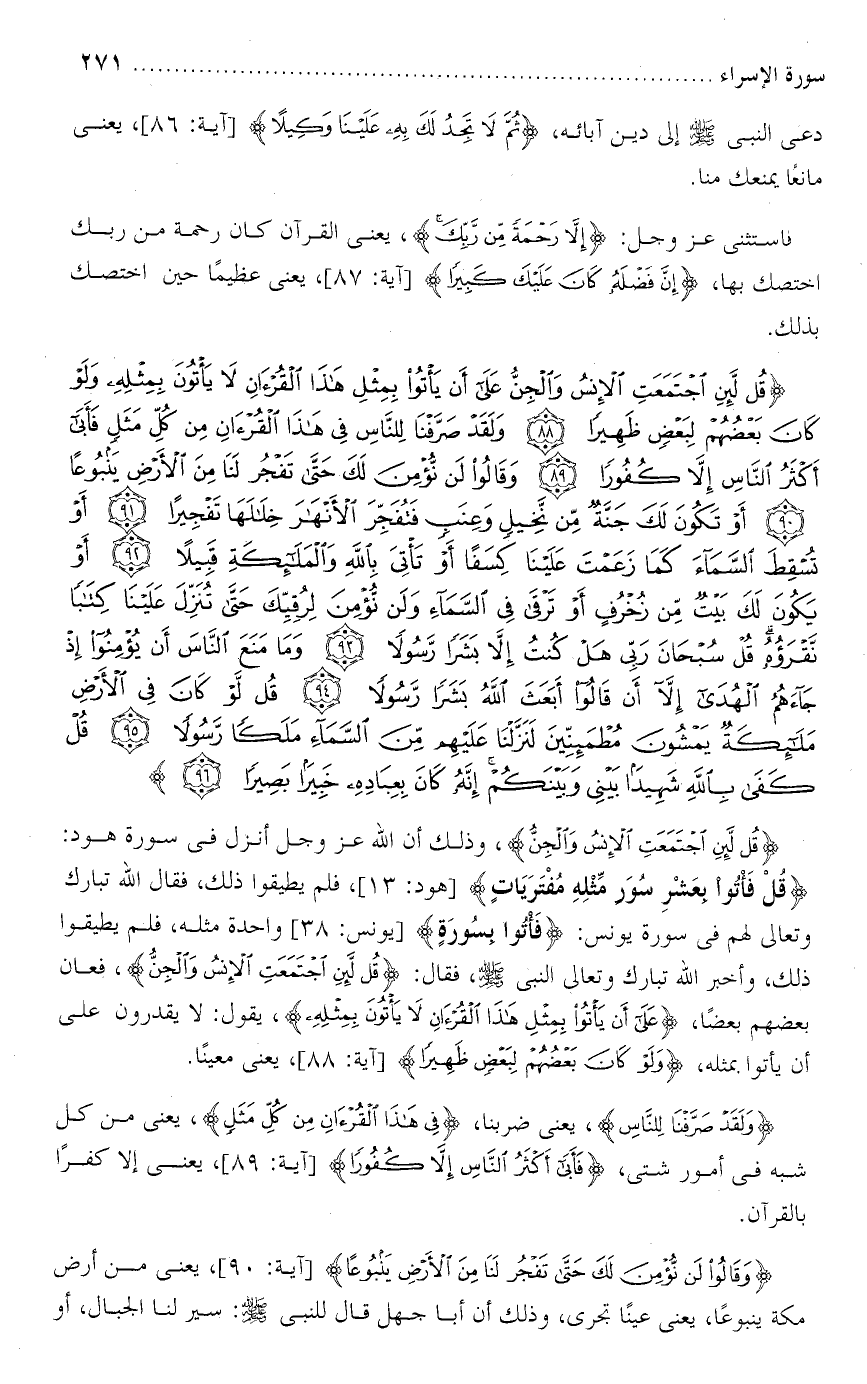 سورة الإسراء ........................................................................ ٢٧١
دعى النبى ﷺ إلى دين آبائه، ﴿ثُمَّ لَا تَجِدُ لَكَ بِهِۦ عَلَيْنَا وَكِيلًا﴾ [آية: ٨٦]، يعنى
مانعًا يمنعك منا.
فاستثنى عز وجل: ﴿إِلَّا رَحْمَةً مِّن رَّبِّكَۚ﴾، يعنى القرآن كان رحمة من ربك
اختصك بها، ﴿إِنَّ فَضْلَهُۥ كَانَ عَلَيْكَ كَبِيرًا﴾ [آية: ٨٧]، يعنى عظيمًا حين اختصك
بذلك.
﴿قُل لَّئِنِ ٱجْتَمَعَتِ ٱلْإِنسُ وَٱلْجِنُّ عَلَىٰٓ أَن يَأْتُوا۟ بِمِثْلِ هَٰذَا ٱلْقُرْءَانِ لَا يَأْتُونَ بِمِثْلِهِۦ وَلَوْ
كَانَ بَعْضُهُمْ لِبَعْضٍ ظَهِيرًا ٨٨ وَلَقَدْ صَرَّفْنَا لِلنَّاسِ فِى هَٰذَا ٱلْقُرْءَانِ مِن كُلِّ مَثَلٍ فَأَبَىٰٓ
أَكْثَرُ ٱلنَّاسِ إِلَّا كُفُورًا ٨٩ وَقَالُوا۟ لَن نُّؤْمِنَ لَكَ حَتَّىٰ تَفْجُرَ لَنَا مِنَ ٱلْأَرْضِ يَنۢبُوعًا
٩٠ أَوْ تَكُونَ لَكَ جَنَّةٌ مِّن نَّخِيلٍ وَعِنَبٍ فَتُفَجِّرَ ٱلْأَنْهَٰرَ خِلَٰلَهَا تَفْجِيرًا ٩١ أَوْ
تُسْقِطَ ٱلسَّمَآءَ كَمَا زَعَمْتَ عَلَيْنَا كِسَفًا أَوْ تَأْتِىَ بِٱللَّهِ وَٱلْمَلَٰٓئِكَةِ قَبِيلًا ٩٢ أَوْ
يَكُونَ لَكَ بَيْتٌ مِّن زُخْرُفٍ أَوْ تَرْقَىٰ فِى ٱلسَّمَآءِ وَلَن نُّؤْمِنَ لِرُقِيِّكَ حَتَّىٰ تُنَزِّلَ عَلَيْنَا كِتَٰبًا
نَّقْرَؤُهُۥۗ قُلْ سُبْحَانَ رَبِّى هَلْ كُنتُ إِلَّا بَشَرًا رَّسُولًا ٩٣ وَمَا مَنَعَ ٱلنَّاسَ أَن يُؤْمِنُوٓا۟ إِذْ
جَآءَهُمُ ٱلْهُدَىٰٓ إِلَّآ أَن قَالُوٓا۟ أَبَعَثَ ٱللَّهُ بَشَرًا رَّسُولًا ٩٤ قُل لَّوْ كَانَ فِى ٱلْأَرْضِ
مَلَٰٓئِكَةٌ يَمْشُونَ مُطْمَئِنِّينَ لَنَزَّلْنَا عَلَيْهِم مِّنَ ٱلسَّمَآءِ مَلَكًا رَّسُولًا ٩٥ قُلْ
كَفَىٰ بِٱللَّهِ شَهِيدًۢا بَيْنِى وَبَيْنَكُمْۚ إِنَّهُۥ كَانَ بِعِبَادِهِۦ خَبِيرًۢا بَصِيرًا ٩٦﴾
﴿قُل لَّئِنِ ٱجْتَمَعَتِ ٱلْإِنسُ وَٱلْجِنُّ﴾، وذلك أن الله عز وجل أنزل فى سورة هود:
﴿قُلْ فَأْتُوا بِعَشْرِ سُوَرٍ مِّثْلِهِ مُفْتَرَيَاتٍ﴾ [هود: ١٣]، فلم يطيقوا ذلك، فقال الله تبارك
وتعالى لهم فى سورة يونس: ﴿فَأْتُوا بِسُورَةٍ﴾ [يونس: ٣٨] واحدة مثله، فلم يطيقوا
ذلك، وأخبر الله تبارك وتعالى النبى ﷺ، فقال: ﴿قُل لَّئِنِ ٱجْتَمَعَتِ ٱلْإِنسُ وَٱلْجِنُّ﴾، فعان
بعضهم بعضًا، ﴿عَلَىٰٓ أَن يَأْتُوا۟ بِمِثْلِ هَٰذَا ٱلْقُرْءَانِ لَا يَأْتُونَ بِمِثْلِهِۦ﴾، يقول: لا يقدرون على
أن يأتوا بمثله، ﴿وَلَوْ كَانَ بَعْضُهُمْ لِبَعْضٍ ظَهِيرًا﴾ [آية: ٨٨]، يعنى معينًا.
﴿وَلَقَدْ صَرَّفْنَا لِلنَّاسِ﴾، يعنى ضربنا، ﴿فِى هَٰذَا ٱلْقُرْءَانِ مِن كُلِّ مَثَلٍ﴾، يعنى من كل
شبه فى أمور شتى، ﴿فَأَبَىٰٓ أَكْثَرُ ٱلنَّاسِ إِلَّا كُفُورًا﴾ [آية: ٨٩]، يعنى إلا كفرًا
بالقرآن.
﴿وَقَالُوا۟ لَن نُّؤْمِنَ لَكَ حَتَّىٰ تَفْجُرَ لَنَا مِنَ ٱلْأَرْضِ يَنۢبُوعًا﴾ [آية: ٩٠]، يعنى من أرض
مكة ينبوعًا، يعنى عينًا تجرى، وذلك أن أبا جهل قال للنبى ﷺ: سير لنا الجبال، أو